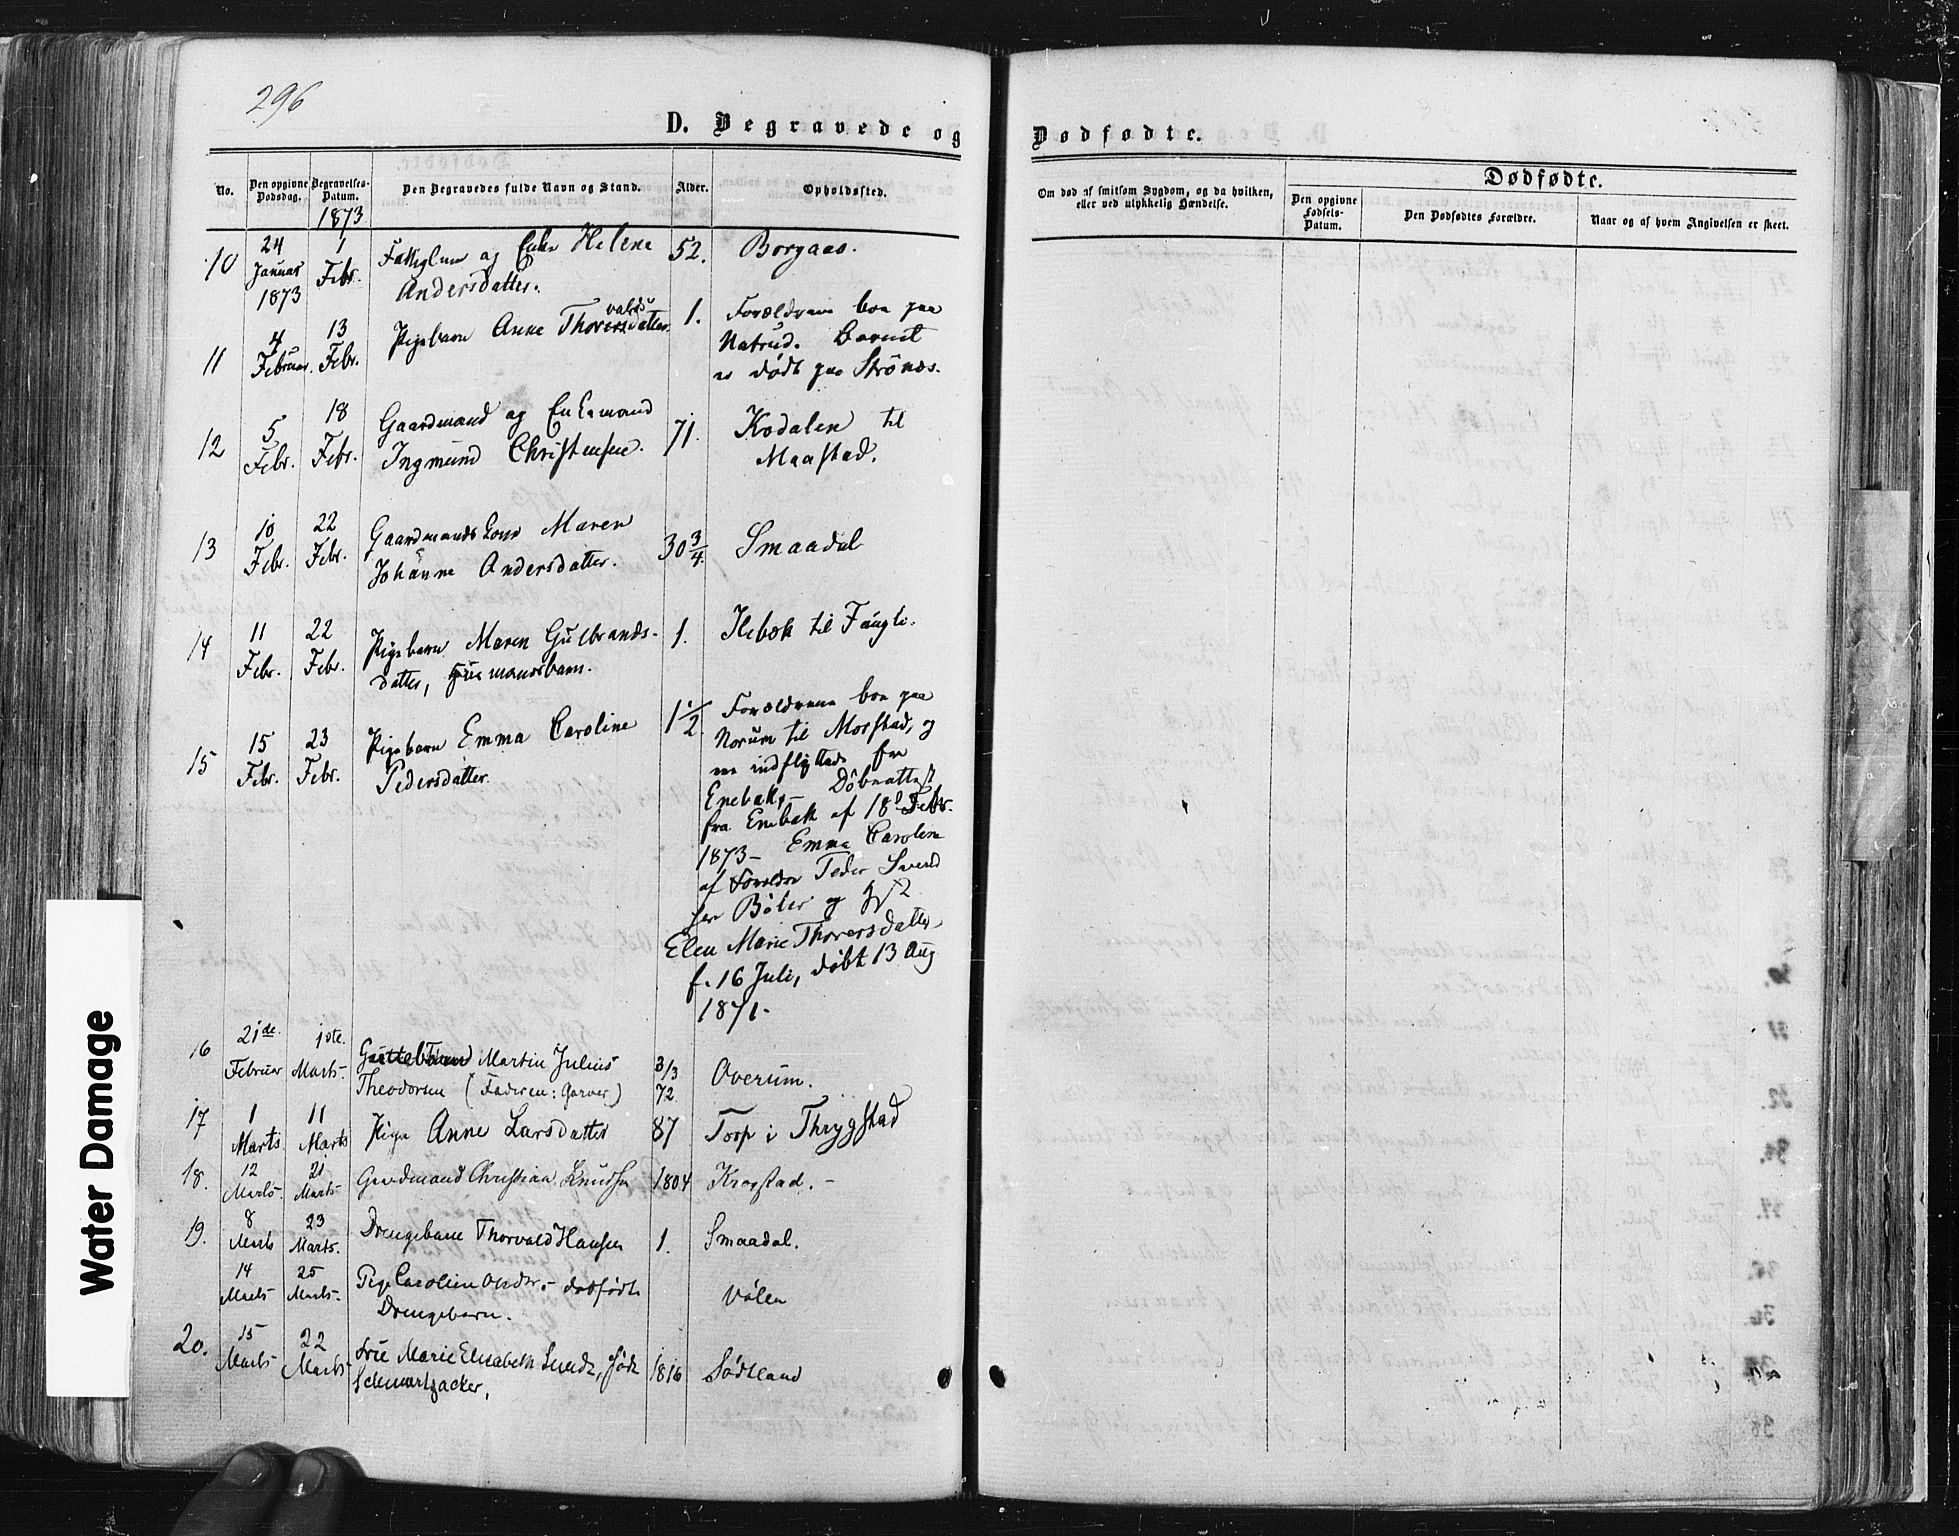 296
D. Begravede og
Dødfødte.
No.
Den opgivne Dødsdag.
Begravelses-Datum.
Den Begravedes fulde Navn og Stand.
Alder.
Opholdssted.
Om død af smitsom Sygdom, og da hvilken,
eller ved ulykkelig Hændelse.
Dødfødte.
Den opgivne Fødsels-Datum.
Den Dødfødtes Forældre.
Naar og af hvem Angivelsen er skeet.
1873
10 24 Januar 1873 1 Febr. og Enke Helene 52. Borgaas.
Andersdatter.
11 4 Februar. 13 Febr. Pigebarn Anne Thorvaldsdatter 1. Forældrene boe paa
Natrud. Barnet
er dødt paa Strönæs.
12 5 Febr. 18 Febr. Gaardmand og Enkemand 71. Kodalen til
Ingmund Christensen. Maastad.
13 10 Febr. 22 Febr. Gaardmands Kone Maren 30 3/4. Smaadal
Johanne Andersdatter.
14 11 Febr. 22 Febr. Pigebarn Maren Gulbrands- 1. Ilebæk til Fangli.
datter, Huusmandsbarn.
15 15 Febr. 23 Febr. Pigebarn Emma Caroline 1 1/2. Forældrene boe paa
Pedersdatter. Norum til Morstad, og
ere indflyttede fra
Enebak,- Döbeattest
fra Enebak af 18d Febr.
1873- Emma Caroline
af Forældre Peder
Böler og
Elen Marie Thorersdatter,
f. 16 Juli, döbt 13 Aug
1871.
16 21de Februar 1ste Marts. Martin Julius 3/3 72 Overum.
Theodorsen (Faderen: Garver)
17 1 Marts. 11 Marts Pige Anne Larsdatter 87 Torp i Thrygstad
18. 12 Marts. 21 Marts Gaardmand Christian Knudsen 1804 Krogstad.-
19. 8 Marts 23 Marts. Drengebarn Thorvald Hansen 1. Smaadal.
14 Marts 25 Marts. Pige Caroline Olsdtr.- dødfödt Völen
Drengebarn.
20. 15 Marts 22 Marts Frue Marie Elisabeth Lunde, född 1816 Södtland
Schwartzacker,
Water Damage